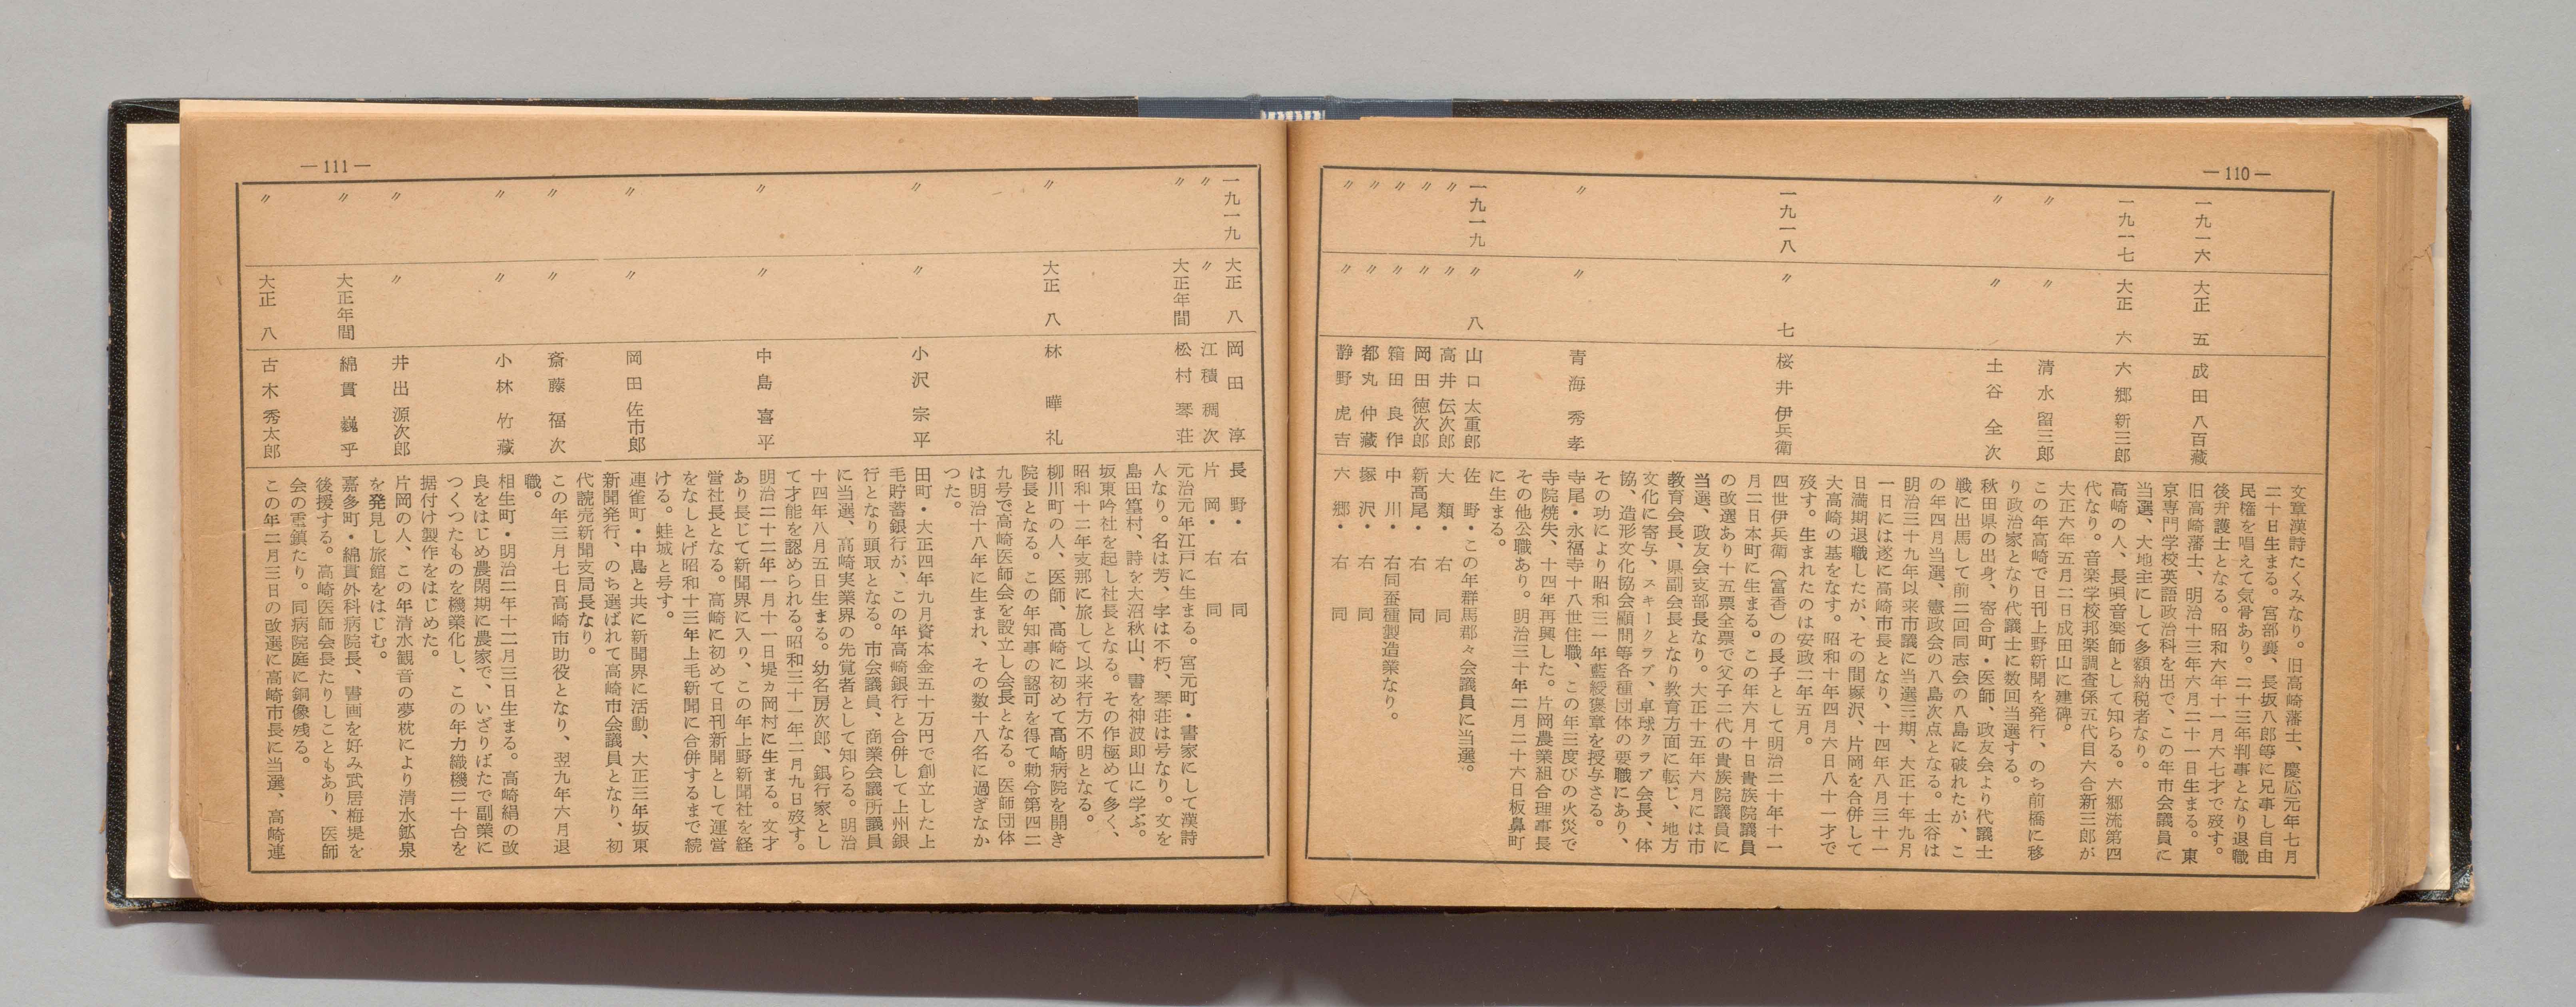 —110—
文章漢詩たくみなり。旧高崎藩士、慶応元年七月
二十日生まる。宮部襄、長坂八郎等に兄事し自由
民権を唱えて気骨あり。二十三年判事となり退職
後弁護士となる。昭和六年十一月六七才で歿す。
一九一六 大正 五 成田 八百蔵 旧高崎藩士、明治十三年六月二十一日生まる。東
京専門学校英語政治科を出で、この年市会議員に
当選、大地主にして多額納税者なり。
一九一七 大正 六 六郷 新三郎 高崎の人、長唄音楽師として知らる。六郷流第四
代なり。音楽学校邦楽調査係五代目六合新三郎が
大正六年五月二日成田山に建碑。
〃 〃 清水 留三郎 この年高崎で日刊上野新聞を発行、のち前橋に移
り政治家となり代議士に数回当選する。
〃 〃 土谷 全次 秋田県の出身、寄合町・医師、政友会より代議士
戦に出馬して前二回同志会の八島に破れたが、こ
の年四月当選、憲政会の八島次点となる。士谷は
明治三十九年以来市議に当選三期、大正十年九月
一日には遂に高崎市長となり、十四年八月三十一
日満期退職したが、その間塚沢、片岡を合併して
大高崎の基をなす。昭和十年四月六日八十一才で
歿す。生まれたのは安政二年五月。
一九一八 〃 七 桜井 伊兵衛 四世伊兵衛（富香）の長子として明治二十年十一
月二日本町に生まる。この年六月十日貴族院議員
の改選あり十五票全票で父子二代の貴族院議員に
当選、政友会支部長なり。大正十五年六月には市
教育会長、県副会長となり教育方面に転じ、地方
文化に寄与、スキークラブ、卓球クラブ会長、体
協、造形文化協会顧問等各種団体の要職にあり、
その功により昭和三一年藍綬褒章を授与さる。
〃 〃 青海 秀孝 寺尾・永福寺十八世住職、この年三度びの火災で
寺院焼失、十四年再興した。片岡農業組合理事長
その他公職あり。明治三十年二月二十六日板鼻町
に生まる。
一九一九 〃 八 山口 太重郎 佐野・この年群馬郡々会議員に当選。
〃 〃 高井 伝次郎 大類・ 右同
〃 〃 岡田 徳次郎 新高尾・ 右同
〃 〃 箱田 良作 中川・ 右同蚕種製造業なり。
〃 〃 都丸 仲蔵 塚沢・ 右同
〃 〃 静野 虎吉 六郷・ 右同
—111—
一九一九 大正 八 岡田 淳 長野・ 右同
〃 〃 江積 稠次 片岡・ 右同
〃 大正年間 松村 琴荘 元治元年江戸に生まる。宮元町・書家にして漢詩
人なり。名は芳、字は不朽、琴荘は号なり。文を
島田篁村、詩を大沼秋山、書を神波即山に学ぶ。
坂東吟社を起し社長となる。その作極めて多く、
昭和十二年支那に旅して以来行方不明となる。
〃 大正 八 林 曄礼 柳川町の人、医師、高崎に初めて高崎病院を開き
院長となる。この年知事の認可を得て勅令第四二
九号で高崎医師会を設立し会長となる。医師団体
は明治十八年に生まれ、その数十八名に過ぎなか
つた。
〃 〃 小沢 宗平 田町・大正四年九月資本金五十万円で創立した上
毛貯蓄銀行が、この年高崎銀行と合併して上州銀
行となり頭取となる。市会議員、商業会議所議員
に当選、高崎実業界の先覚者として知らる。明治
十四年八月五日生まる。幼名房次郎、銀行家とし
て才能を認められる。昭和三十一年二月九日歿す。
〃 〃 中島 喜平 明治二十二年一月十一日堤ヵ岡村に生まる。文才
あり長じて新聞界に入り、この年上野新聞社を経
営社長となる。高崎に初めて日刊新聞として運営
をなしとげ昭和十三年上毛新聞に合併するまで続
ける。蛙城と号す。
〃 〃 岡田 佐市郎 連雀町・中島と共に新聞界に活動、大正三年坂東
新聞発行、のち選ばれて高崎市会議員となり、初
代読売新聞支局長なり。
〃 〃 斎藤 福次 この年三月七日高崎市助役となり、翌九年六月退
職。
〃 〃 小林 竹蔵 相生町・明治二年十二月三日生まる。高崎絹の改
良をはじめ農閑期に農家で、いざりばたで副業に
つくつたものを機業化し、この年力織機二十台を
据付け製作をはじめた。
〃 〃 井出 源次郎 片岡の人、この年清水観音の夢枕により清水鉱泉
を発見し旅館をはじむ。
〃 大正年間 綿貫 巍乎 嘉多町・綿貫外科病院長、書画を好み武居梅堤を
後援する。高崎医師会長たりしこともあり、医師
会の重鎮たり。同病院庭に銅像残る。
〃 大正 八 古木 秀太郎 この年二月三日の改選に高崎市長に当選、高崎連